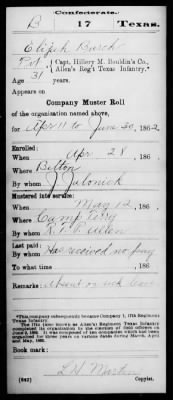 Confederate.
B 17 Texas.
Elijah Burch
Pvt, Capt. Hillery M. Bouldin's Co.,
Allen's Reg't Texas Infantry.*
Age 31 years.
Appears on
Company Muster Roll
of the organization named above,
for Apr 11 to June 30, 1862
Enrolled:
When Apr 28, 186
Where Belton
By whom J. Jalonick
Mustered into service:
When May 12, 186
Where Camp Terry
By whom R. T. P. Allen
Last paid:
By whom Has received no pay
To what time , 186
Remarks: Absent on sick leave
*This company subsequently became Company I, 17th Regiment Texas Infantry.
The 17th (also known as Allen's) Regiment Texas Infantry
completed its organization by the election of field officers on
June 2, 1862. It was composed of ten companies which had been
organized for three years on various dates during March, April
and May, 1862.
Book mark:
L H Martin
(642) Copyist.